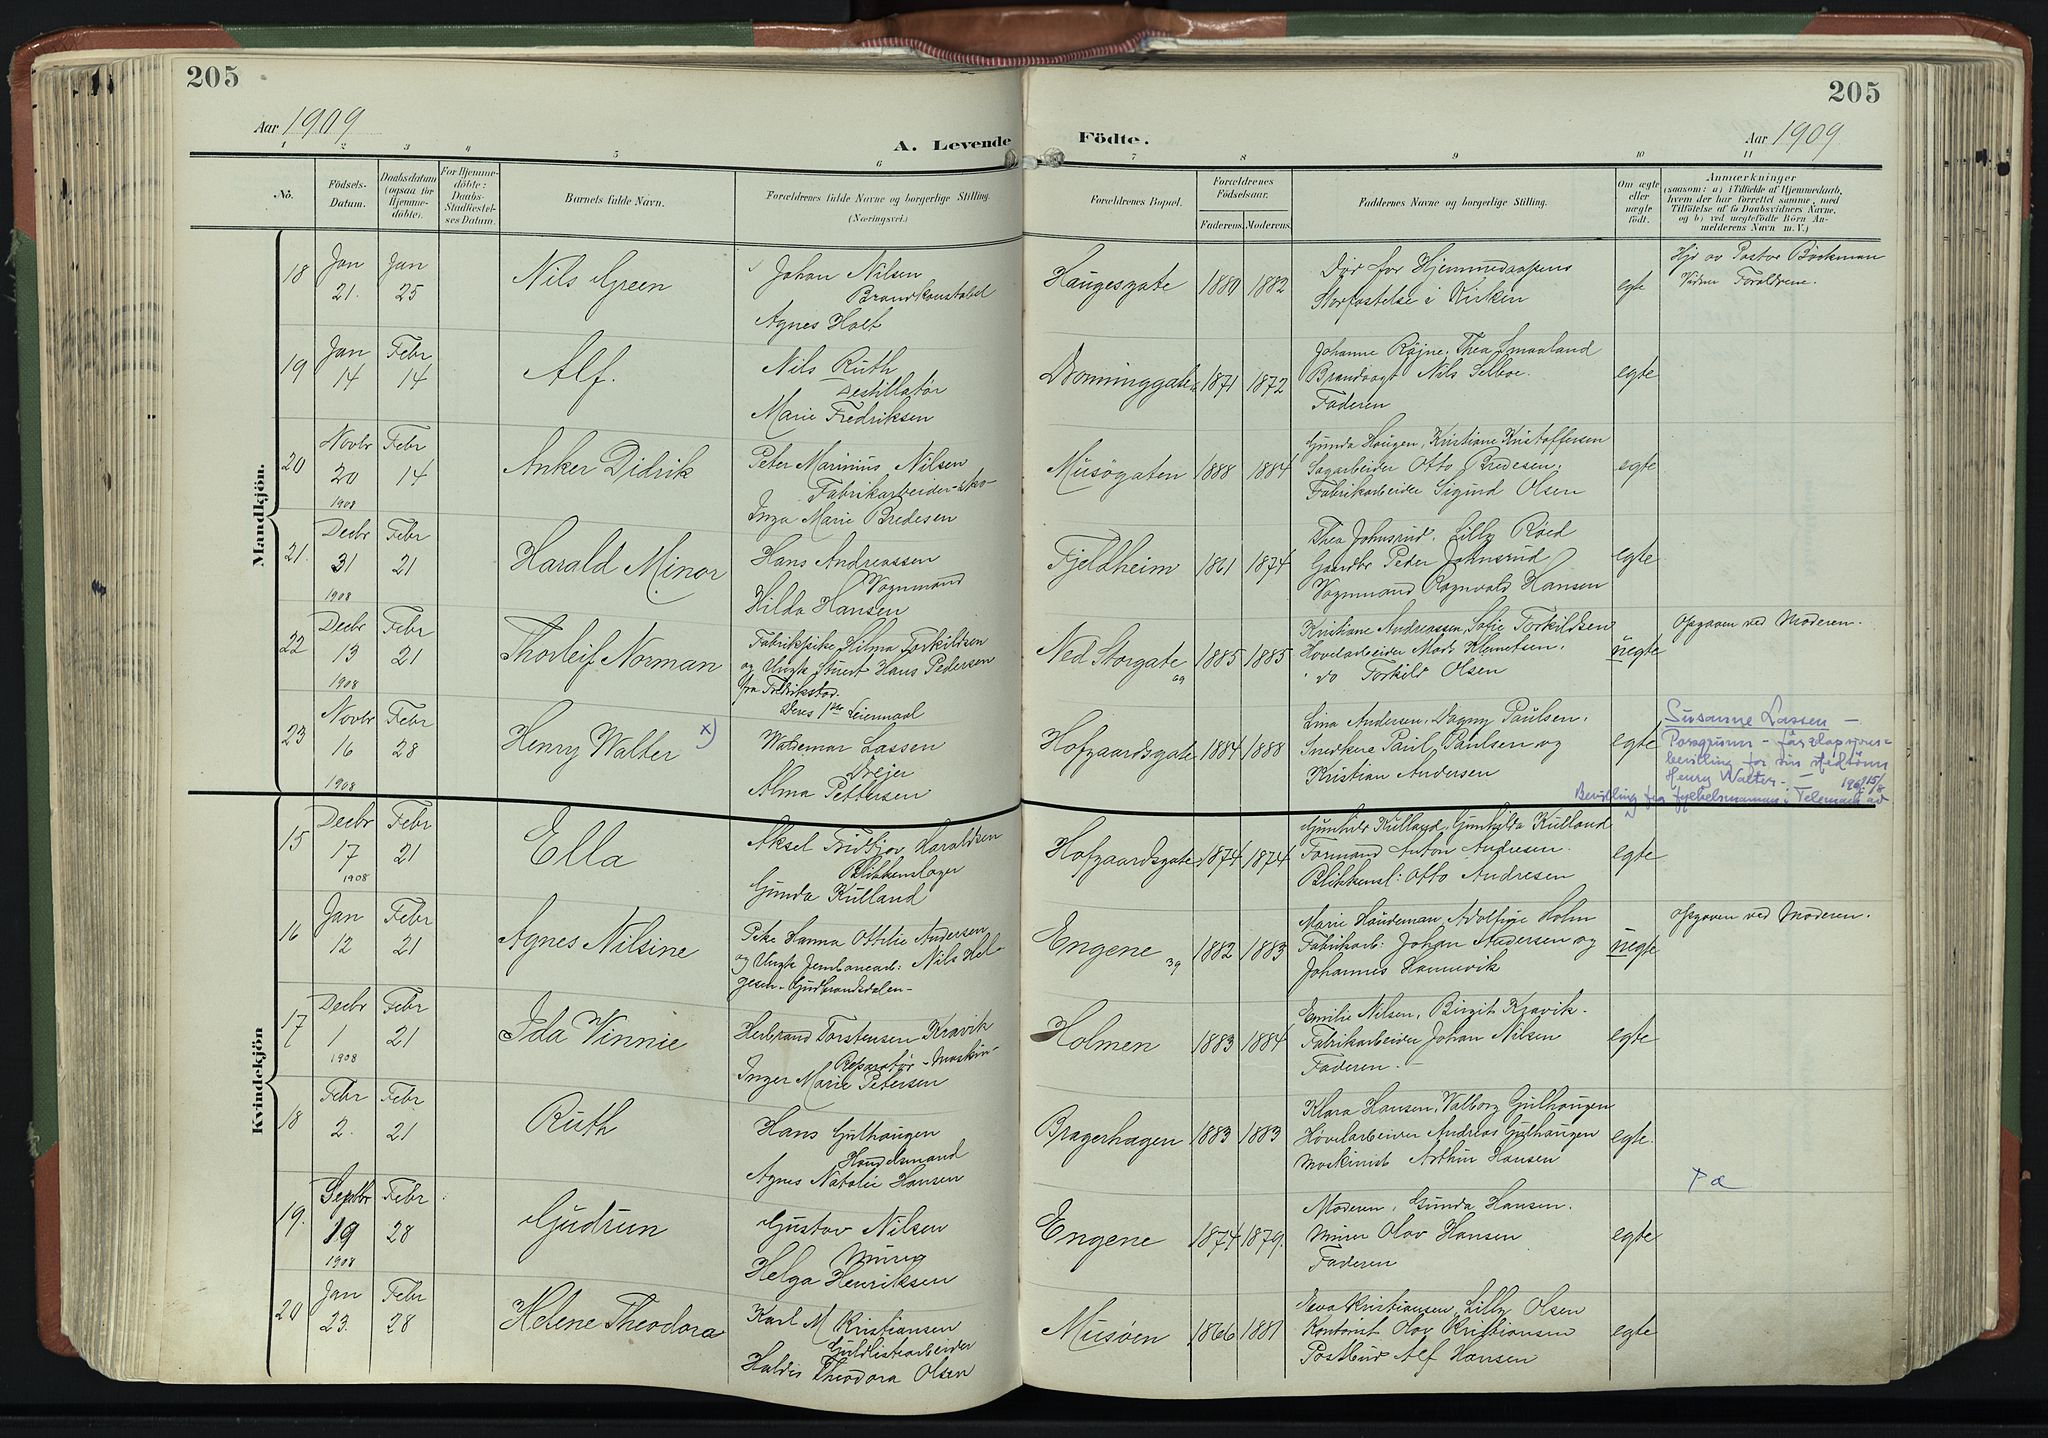 205
205
Aar 1909
A. Levende Födte.
Aar 1909
1 2 3 4 5 6 7 8 9 10 11
No.
Födsels-
Datum.
Daabsdatum
(ogsaa for
Hjemme-
döbte).
For Hjemme-
döbte:
Daabs-
Stadfæstel-
ses Datum.
Barnets fulde Navn.
Forældrenes fulde Navne og borgerlige Stilling.
(Næringsvei.)
Forældrenes Bopæl.
Forældrenes
Födselsaar.
Faderens. Moderens.
Faddernes Navne og borgerlige Stilling.
Om ægte
eller
uægte
födt.
Anmærkninger
(saasom: a) i Tilfælde af Hjemmedaab,
hvem der har forrettet samme, med
Tilföielse af to Daabsvidners Navne,
og b) ved uægtefödte Börn An-
melderens Navn m. V.)
Mandkjön.
18
Jan
21.
Jan
25
Nils Green
Johan Nilsen
Brandkonstabel
Agnes Holt
Haugesgate
1889 1882
Död för Hjemmedaapens
Storfæstelse i Kirken
egte
Hjd av Pastor Böckman
Vidner Forældrene.
19
Jan
14
Febr
14
Alf.
Nils Ruth
Destillatør
Marie Fredriksen
Dronninggaten
1871 1872
Johanne Røjne, Thea Smaaland
Brandvagt Nils Selboe.
Faderen
egte
20
Novbr
20
1908
Febr
14
Anker Didrik
Peter Marinius Nilsen
Fabrikarbeider-sko-
Inga Marie Bredesen
Musøgaten
1888 1884
Gunda Haugen, Kristiane Kristoffersen
Sagarbeider Otto Bredesen.
Fabrikarbeider Sigurd Olsen
egte
21.
Decbr
31
1908
Febr
21
Harald Minor
Hans Andreassen
Vognmand
Hilda Hansen
Fjeldheim
1861 1874
Thea Johnsrud. Lilly Røed
Gaardbr Peder Johnsrud
Vognmand Ragnvald Hansen
egte
22
Decbr
13
1908
Febr
21
Thorleif Norman
Fabrikpike Hilma Torkildsen
og Ungk Stuert Hans Pedersen
fra Fredrikstad.
Deres 1ste Leiermaal
Ned Storgate
69
1885 1885
Kristiane Andreassen, Sofie Torkildsen
Høvelarbeider Mads Klemetsen.
do Torkild Olsen
uegte
Opgaven ved Moderen.
23
Novbr
16
1908
Febr
28
Henry Walter x)
Waldemar Lassen
Drejer
Alma Pettersen
Hofgaardsgate
1884 1888
Lina Andersen, Dagny Paulsen.
Snedkere Paul Paulsen og
Kristian Andersen
egte
Susanne Lassen -
Porsgrunn - får adopsjons-
bevilling for sin stedsønn
Henry Walter. -
Bevilling fra fylkesmannen i Telemark av 15/8
Kvindekjön
15
Decbr
17
1908
Febr
21
Ella
Aksel Fridtjov Haraldsen
Blikkenslager
Gunda Kulland
Hofgaardsgate
1874 1874
Gunhild Kulland, Gunhilda Kulland
Formand Anton Andresen.
Blikkensl: Otto Andresen
egte
16
Jan
12
Febr
21
Agnes Nilsine
Pike Hanna Ottilie Andersen
og Ungk Jernbanearb: Nils Hel-
gesen - Gudbrandsdalen -
Engene
39
1882 1883
Marie Haudeman, Adolfine Holm
Fabrikarb: Johan Andersen og
Johannes Hannevik
uegte
Opgaven ved Moderen.
17
Decbr
1
1908
Febr
21
Ida Vinnie
Herbrand Torstensen Kravik
Reparatør - Maskin-
Inger Marie Petersen
Holmen
1883 1884
Emilie Nilsen, Birgit Kravik.
Fabrikarbeider Johan Nilsen
Faderen. -
egte
18
Febr
2.
Febr
21
Ruth
Hans Gulhaugen
Handelsmand
Agnes Natalie Hansen
Bragerhagen
1883 1883
Klara Hansen, Valborg Gulhaugen
Høvelarbeider Andreas Gulhaugen
Maskinist Arthur Hansen
egte.
19.
Septbr
19
1908
Febr
28
Gudrun
Gustav Nilsen
Murer
Helga Henriksen
Engene
1874 1879.
Moderen, Gunda Hansen.
Murer Olav Hansen
Faderen
egte
20
Jan
23.
Febr
28
Helene Theodora
Karl M Kristiansen
Guldlistearbeider
Haldis Theodora Olsen
Musøen
1866 1881
Eva Kristiansen, Lilly Olsen
Kontorist Olav Kristiansen
Postbud Alf Hansen
egte